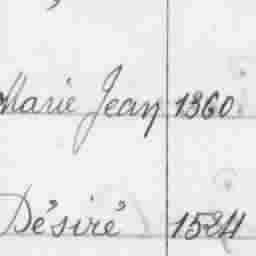 Marie Jean 1360
Désiré 1524